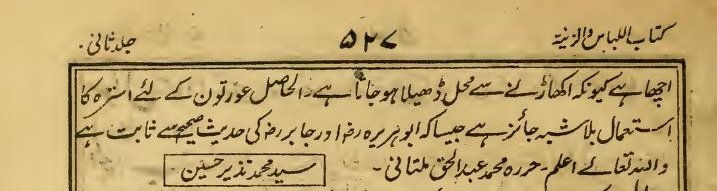 کتاب اللباس والزینۃ ۵۲۷ جلد ثانی۔
اچھا ہے کیونکہ اکھاڑنے سے محل ڈھیلا ہو جاتا ہے۔ الحاصل عورتون کے لئے استرہ کا
استعمال بلاشبہ جائز ہے جیسا کہ ابوہریرہ رضہ اور جابر رضہ کی حدیث صحیح سے ثابت ہے
واللہ تعالے اعلم۔ حررہ محمد عبدالحق ملتانی۔ سید محمد نذیر حسین